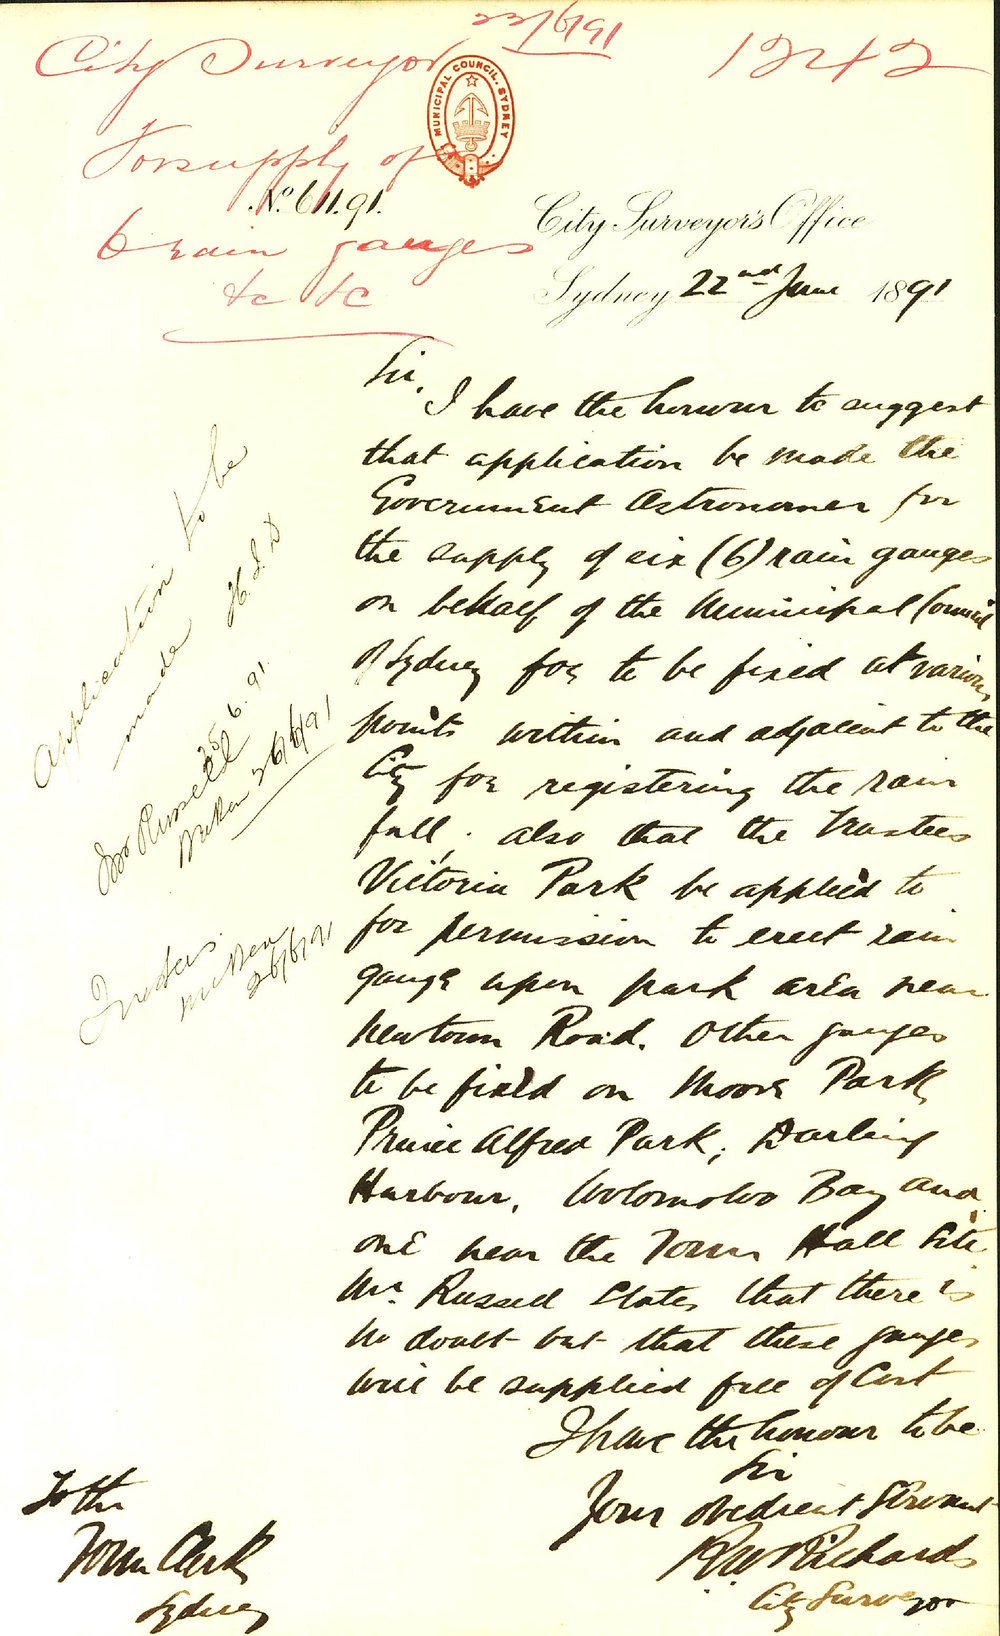 23/6/91
City Surveyor
1242
MUNICIPAL COUNCIL. SYDNEY
For supply of
No 611.91.
6 rain gauges
&c &c
City Surveyor's Office
Sydney 22nd June 1891
Sir,
I have the honour to suggest
that application be made the
Government Astronomer for
the supply of six (6) rain gauges
on behalf of the Municipal Council
of Sydney for to be fixed at various
points within and adjacent to the
City for registering the rain
fall; also that the Trustees
Victoria Park be applied to
for permission to erect rain
gauge upon park area near
Newtown Road. Other gauges
to be fixed on Moore Park,
Prince Alfred Park, Darling
Harbour, Woolomoloo Bay and
one near the Town Hall site.
Mr. Russell states that there is
no doubt but that these gauges
will be supplied free of Cost
I have the honour to be
Sir
Your obedient Servant
R W Richards
City Surveyor
To the
Town Clerk
Sydney
Application to be
made
25.6.91.
Russell
26/6/91
Trustees
26/6/91